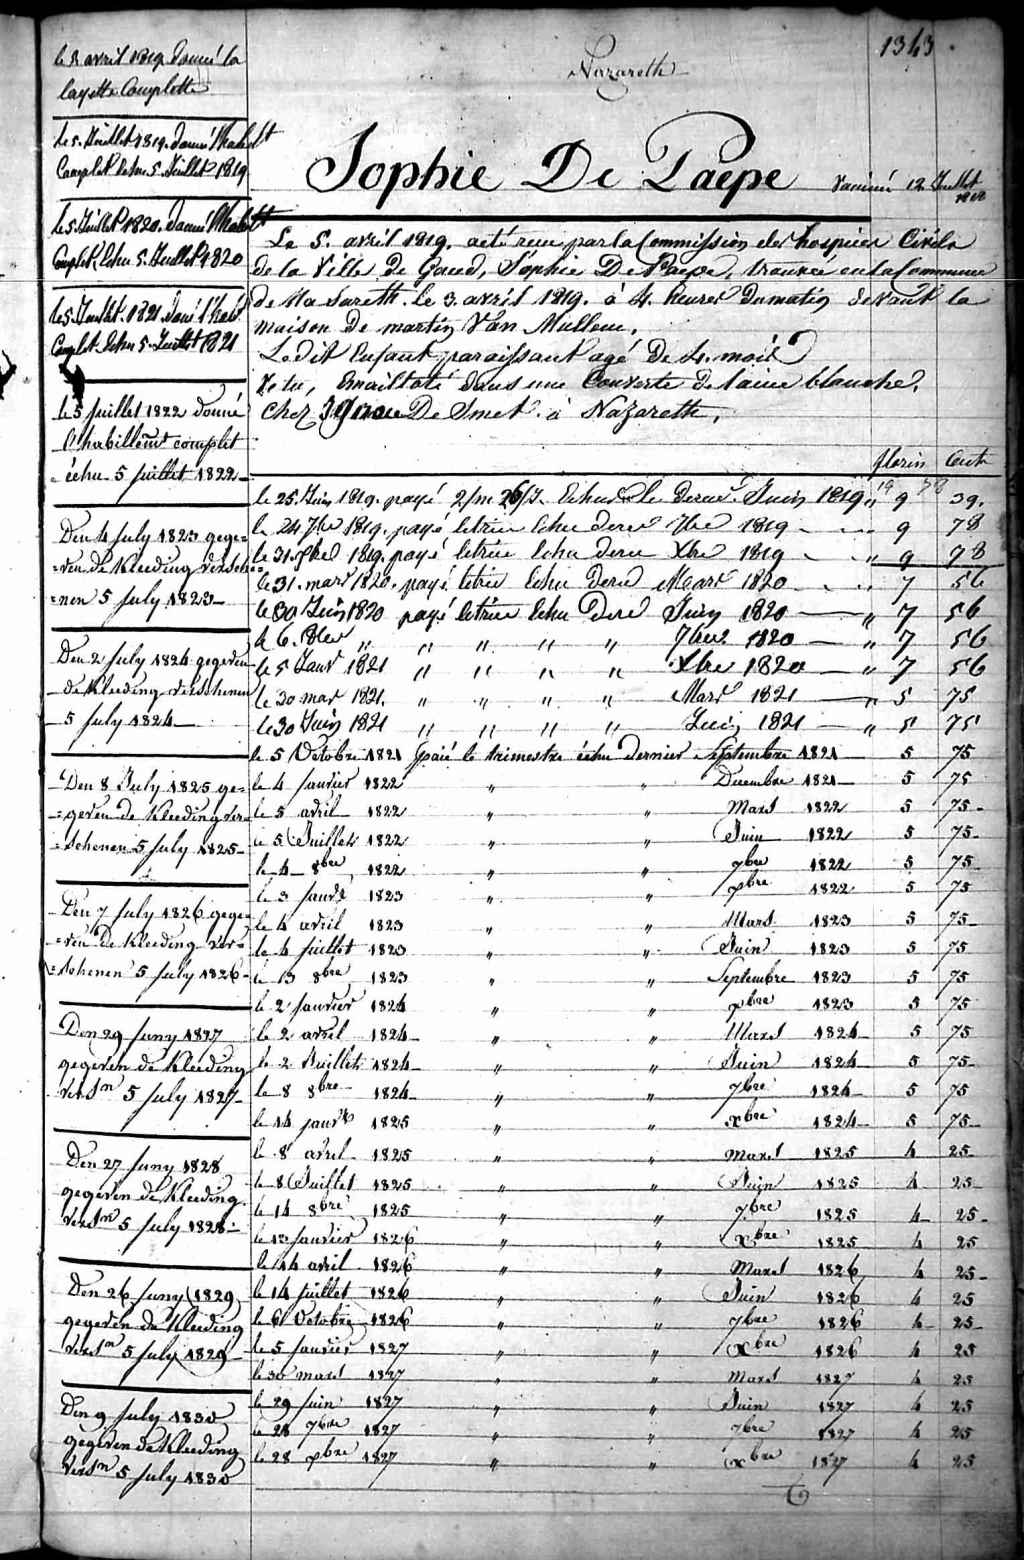 1343.
Nazareth
Sophie De Paepe vacciné 12 Juillet
Le 5. avril 1819. a été reçu par la Commission des hospices Civils
de la Ville de Gand, Sophie De Paepe, trouvée en la Commune
de Nazareth. le 3. avril 1819. à 4. heures du matin devant la
maison de martin Van Mullem.
Ledit Enfant paraissant agé de 4. mois
Vetu, Emailloté dans une Couverte de laine blanche.
Chez Ignace De Smet à Nazareth.
le 2 avril 1819 donné la
layette Complette
le 5. Juillet 1819. donné l'habilt
Complet Echu 5. Juillet 1819
le 5. Juillet 1820. donné l'habilt
Complet Echu 5. Juillet 1820
le 5. Juillet. 1821. doné l'habil
Complet Echu 5. Juillet 1821
le 5 juillet 1822 donné
l'habillemt complet
échu 5 juillet 1822
Den 4 july 1823 gege=
=ven de Kleeding versche=
=nen 5 july 1823
Den 2 july 1824 gegeven
de Kleeding verschenen
5 july 1824
Den 8 July 1825 ge=
=geven de Kleeding ver=
=schenen 5 july 1825
Den 7 july 1826 gege=
=ven de Kleeding ver=
=schenen 5 july 1826
Den 29 juny 1827
gegeven de Kleeding
versn 5 july 1827
Den 27 juny 1828
gegeven de Kleeding
versn 5 july 1828
Den 26 juny 1829
gegeven de Kleeding
versn 5 july 1829
Den 9 july 1830
gegeven de Kleeding
versn 5 july 1830
florin Cents
le 25. Juin 1819. payé Echus le Derne. Juin 1819 „ 9 39.
le 24 7bre 1819. payé letrim Echu dern 7bre 1819 9 78
le 31. Xbre 1819. payé letrim Echu dern Xbre 1819 „ 9 78
le 31. mars 1820. payé letrim Echu Dern Mars 1820 7 56
le 30 Juin 1820 payé letrim Echu Dern Juin 1820 „ 7 56
le 6. 8bre „ „ „ „ „ 7bre 1820 „ 7 56
le 5 Janv 1821 „ „ „ „ Xbre 1820 „ 7 56
le 30 mar 1821. „ „ „ „ Mars 1821 5 75
le 30 Juin 1821 „ „ „ „ Juin 1821 „ 5 75
le 5 Octobre 1821 payé le trimestre échu dernier Septembre 1821 5 75
le 4 janvier 1822 „ „ Decembre 1821 5 75
le 5 avril 1822 „ „ Mars 1822 5 75
le 5 Juillet 1822 „ „ Juin 1822 5 75
le 4 8bre 1822 „ „ 7bre 1822 5 75
le 3 janvr 1823 „ „ xbre 1822 5 75
le 4 avril 1823 „ „ Mars 1823 5 75
le 4 juillet 1823 „ „ Juin 1823 5 75
le 13 8bre 1823 „ „ Septembre 1823 5 75
le 2 janvier 1824 „ „ xbre 1823 5 75
le 2 avril 1824 „ „ Mars 1824 5 75
le 2 Juillet 1824 „ „ Juin 1824 5 75
le 8 8bre 1824 „ „ 7bre 1824 5 75
le 14 janvr 1825 „ „ xbre 1824 5 75
le 8 avril 1825 „ „ mars 1825 4 25
le 8 Juillet 1825 „ „ Juin 1825 4 25
le 14 8bre 1825 „ „ 7bre 1825 4 25
le 13 janvier 1826 „ „ xbre 1825 4 25
le 14 avril 1826 „ „ Mars 1826 4 25
le 14 juillet 1826 „ „ Juin 1826 4 25
le 6 Octobre 1826 „ „ 7bre 1826 4 25
le 5 janvier 1827 „ „ xbre 1826 4 25
le 30 mars 1827 „ „ Mars 1827 4 25
le 29 juin 1827 „ „ Juin 1827 4 25
le 28 7bre 1827 „ „ 7bre 1827 4 25
le 28 xbre 1827 „ „ xbre 1827 4 25